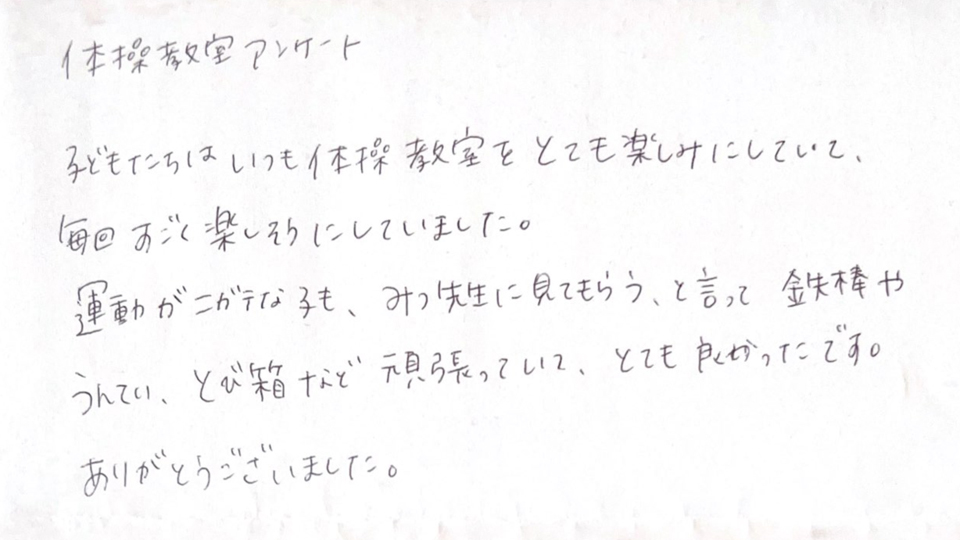 体操教室アンケート
子どもたちは いつも 体操教室を とても楽しみにしていて、
毎回 すごく楽しそうにしていました。
運動がニガテな子も、みつ先生に見てもらう、と言って 鉄棒や
うんてい、とび箱など 頑張っていて、とても 良かったです。
ありがとうございました。